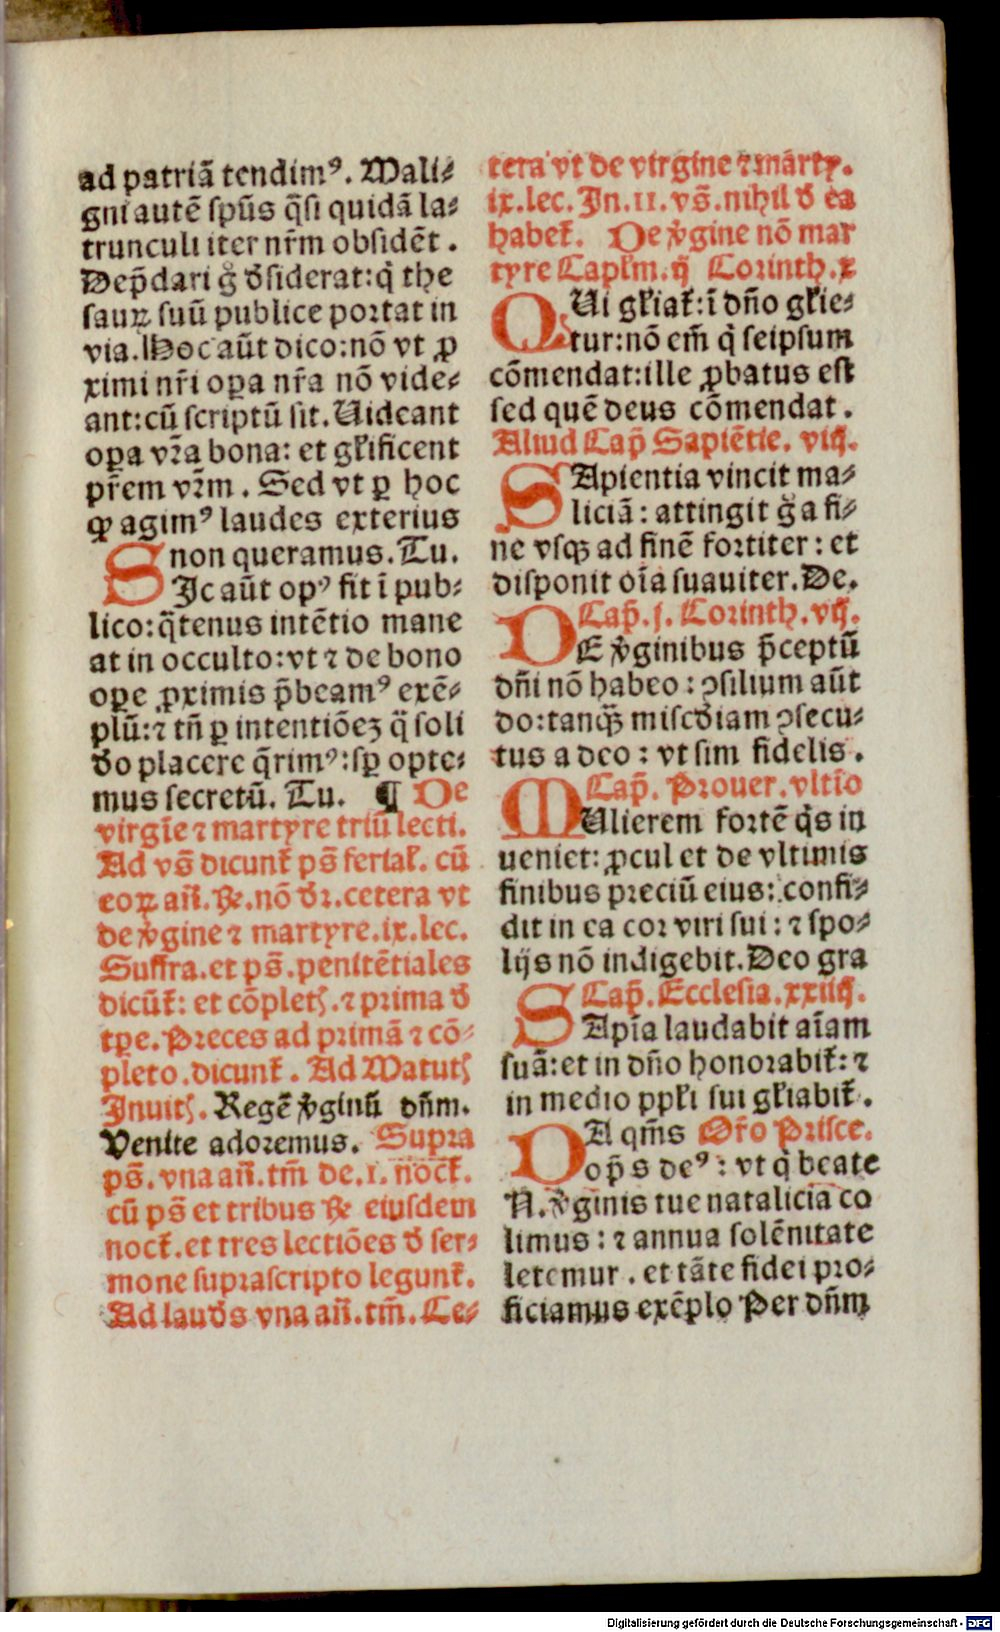 ad patriā tendimꝰ. Mali⸗
gni autē ſpūs q̄ſi quidā la⸗
trunculi iter nr̄m obſidēt.
Dep̄dari g̊ ꝺſiderat: q̇ the
ſauꝝ ſuū publice portat in
via. Hoc aūt dico: nō vt ꝓ
ximi nr̄i oꝑa nr̄a nō vide⸗
ant: cū ſcriptū ſit. Uideant
oꝑa vr̄a bona: et gl̄ificent
pr̄em vr̄m. Sed vt ꝑ hoc
ꝙ agimꝰ laudes exterius
non queramus. Tu.
SIc aūt opꝰ fit ī pub⸗
lico: q̄tenus intētio mane
at in occulto: vt ⁊ de bono
oꝑe ꝓximis p̄beamꝰ exē⸗
plū: ⁊ tn̄ ꝑ intentiōeꝫ q̄ ſoli
ꝺo placere q̄rimꝰ: ſꝑ opte⸗
mus ſecretū. Tu. ¶ De
virgīe ⁊ martyre triū lecti.
Ad vs̄ dicunt̄ ps̄ ferial̄. cū
eoꝝ añ. ℟. nō ꝺr. cetera vt
de v̇gine ⁊ martyre. ix. lec.
Suffra. et ps̄. penitētiales
dicūt̄: et cōpletꝭ. ⁊ prima ꝺ
tꝑe. Preces ad primā ⁊ cō⸗
pleto. dicunt̄. Ad Matutꝭ
Inuitꝭ. Regē v̇ginū dn̄m.
Venite adoremus. Supra
ps̄. vna añ. tm̄ de. I. noct̄.
cū ps̄ et tribus ℟ eiuſdem
noct̄. et tres lectiōes ꝺ ſer⸗
mone ſupraſcripto legunt̄.
Ad lauds vna añ. tm̄. Ce⸗
tera vt de virgine ⁊ marty.
ix. lec. In. II. vs̄. nihil ꝺ ea
habet̄. De v̇gine nō mar
tyre Capl̄m. ij Corinth. x
QUi gl̄iat̄: ī dn̄o gl̄ie⸗
tur: nō em̄ q̇ ſeipſum
cōmendat: ille ꝓbatus eſt
ſed quē deus cōmendat.
Aliud Cap̄ Sapiētie. viij.
SApientia vincit ma⸗
liciā: attingit g̊ a fi⸗
ne vſqꝫ ad finē fortiter: et
diſponit oīa ſuauiter. De.
Cap̄. j. Corinth. vij.
DE v̇ginibus p̄ceptū
dn̄i nō habeo: ↄſilium aūt
do: tanqꝫ̄ miſcꝺiam ↄſecu⸗
tus a deo: vt ſim fidelis.
Cap̄. Prouer. vltīo
MUlierem fortē q̇s in
ueniet: ꝓcul et de vltimis
finibus preciū eius: confi⸗
dit in ea cor viri ſui: ⁊ ſpo⸗
lijs nō indigebit. Deo gra
Cap̄. Eccleſia. xxiiij.
SApīa laudabit aīam
ſuā: et in dn̄o honorabit̄: ⁊
in medio ppl̄i ſui gl̄iabit̄.
DA qm̄s Or̄o Priſce.
op̄s deꝰ: vt q̇ beate
N. v̇ginis tue natalicia co
limus: ⁊ annua ſolēnitate
letemur. et tāte fidei pro⸗
ficiamus exēplo Per dn̄m
Digitalisierung gefördert durch die Deutsche Forschungsgemeinschaft - DFG